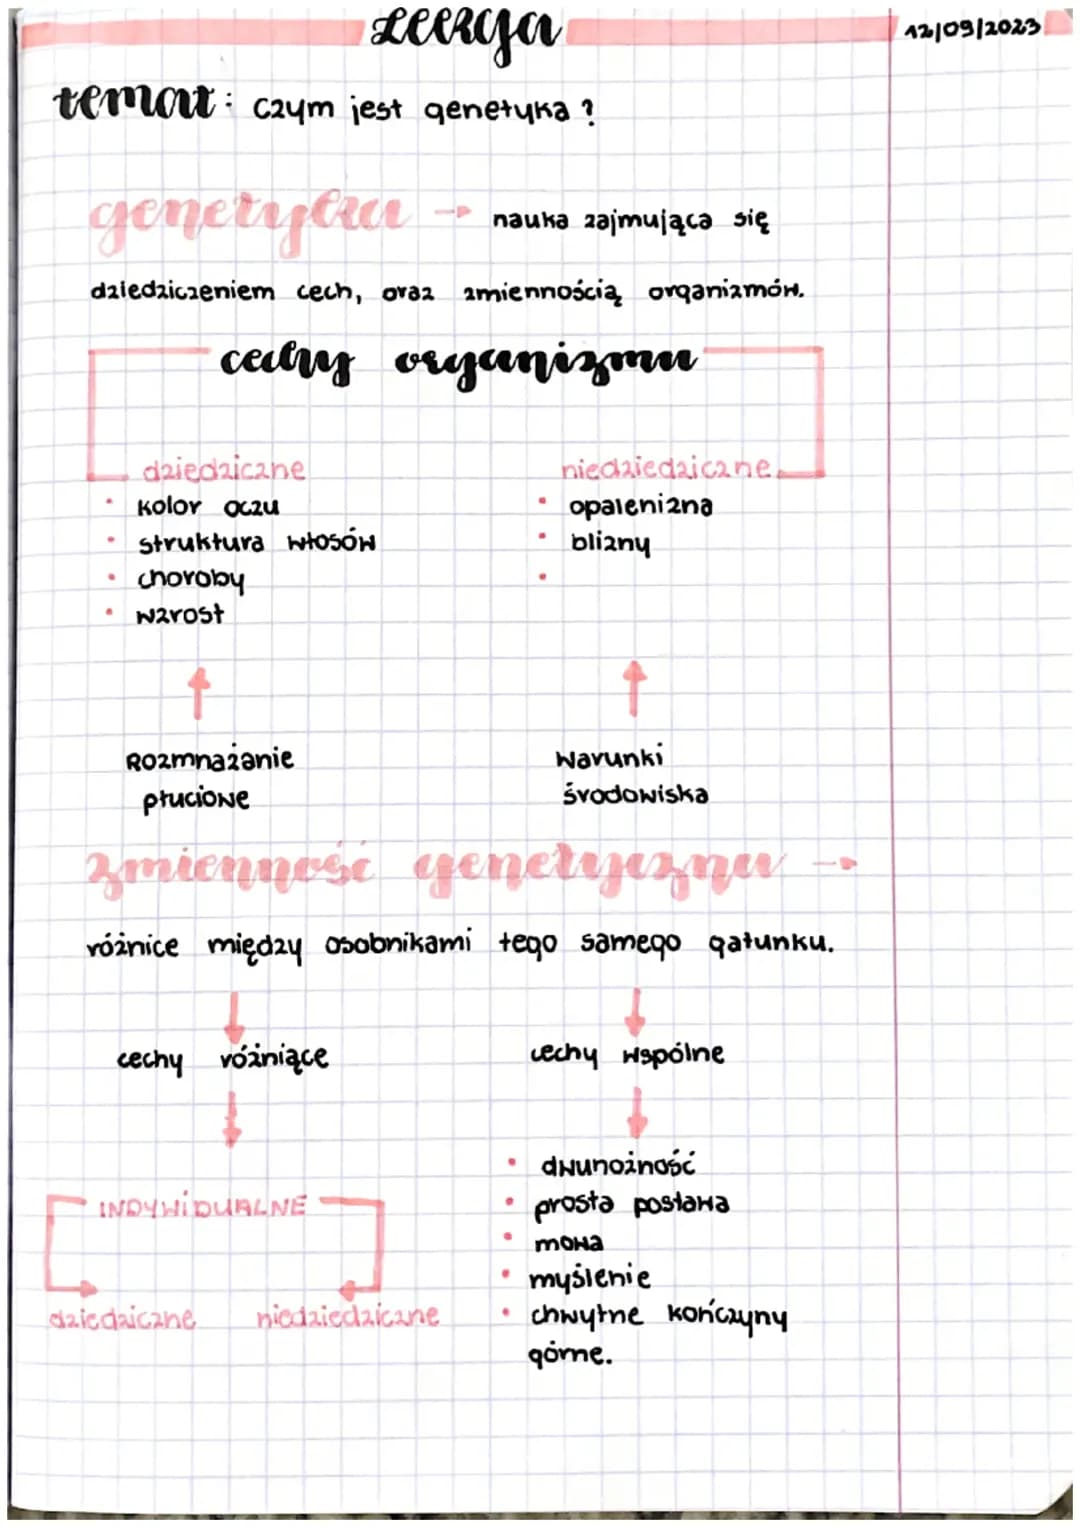 Lekcja
12/09/2023
temat: Czym jest genetyka?
genetyka → nauka zajmująca się
dziedziczeniem cech, oraz zmiennością organizmów.
cechy organizmu
dziedziczne
niedziedziczne
• kolor oczu
• opalenizna
• struktura włosów
• blizny
• choroby
•
• wzrost
↑
↑
Rozmnażanie
Warunki
płciowe
środowiska
zmienność genetyczna →
różnice między osobnikami tego samego gatunku.
↓
↓
cechy różniące
cechy wspólne
↓
↓
• dwunożność
INDYWIDUALNE
• prosta postawa
• mowa
• myślenie
dziedziczne niedziedziczne
• chwytne kończyny
górne.